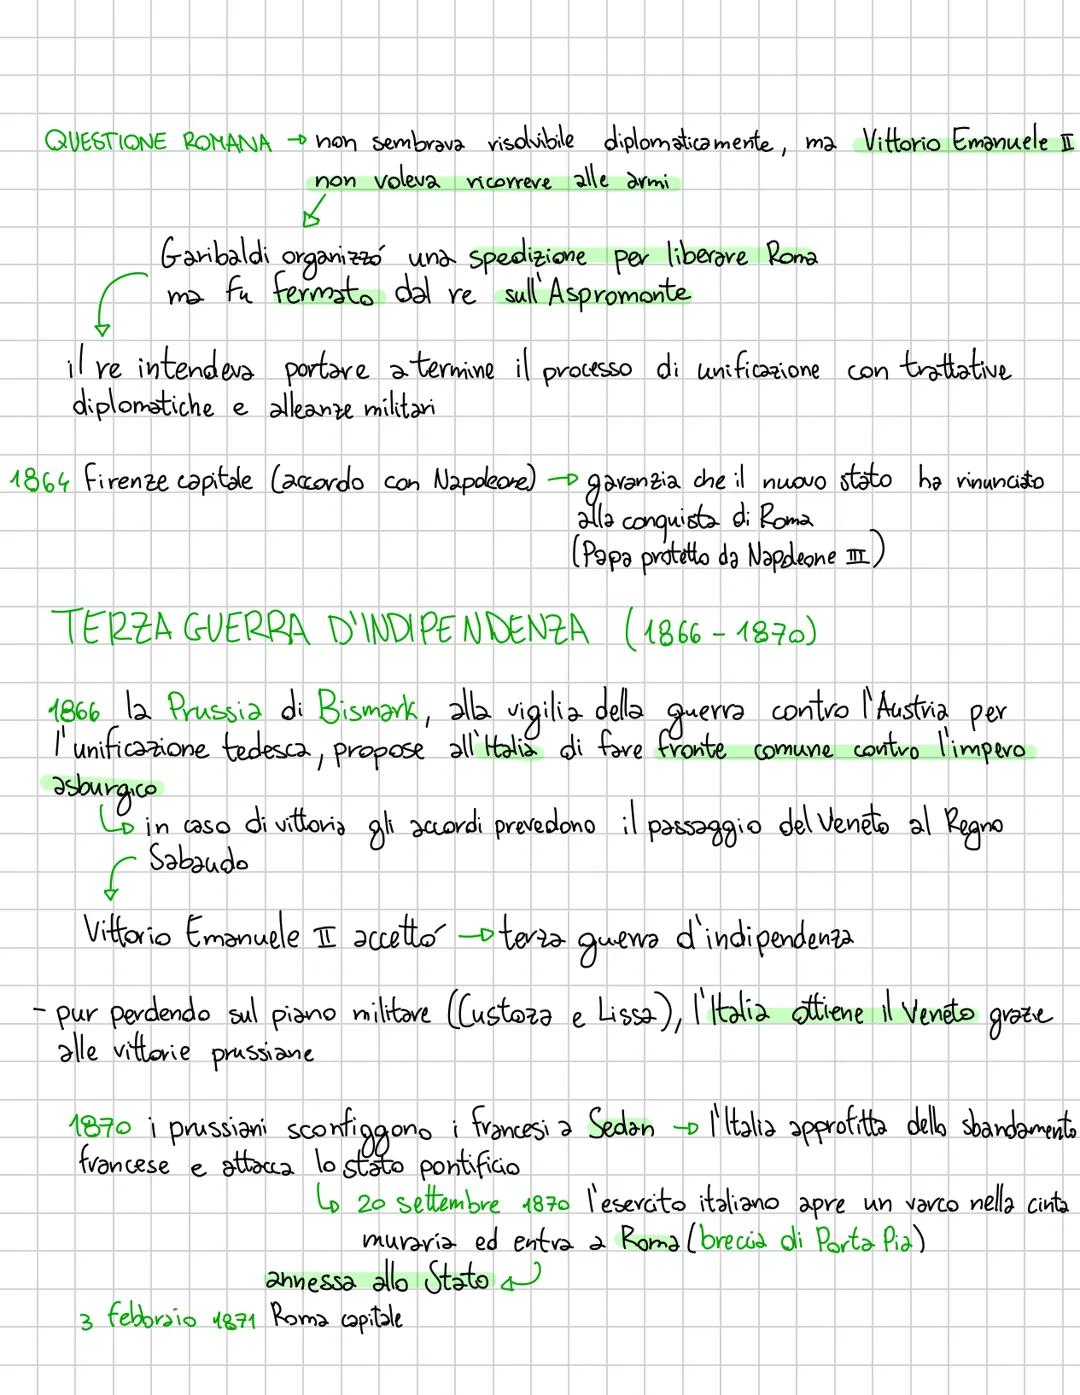 QUESTIONE ROMANA → non sembrava risolvibile diplomaticamente, ma Vittorio Emanuele II
non voleva ricorrere alle armi
Garibaldi organizzó una spedizione per liberare Roma
ma fu fermato dal re sull'Aspromonte
il re intendeva portare a termine il processo di unificazione con trattative
diplomatiche e alleanze militari
1864 Firenze capitale (accordo con Napoleone) → garanzia che il nuovo stato ha rinunciato
alla conquista di Roma
(Papa protetto da Napoleone III)
TERZA GUERRA D'INDIPENDENZA (1866 - 1870)
1866 la Prussia di Bismark, alla vigilia della guerra contro l'Austria per
l'unificazione tedesca, propose all'Italia di fare fronte comune contro l'impero
asburgico
↳ in caso di vittoria gli accordi prevedono il passaggio del Veneto al Regno
Sabaudo
Vittorio Emanuele II accettó → terza guerra d'indipendenza
- pur perdendo sul piano militare (Custoza e Lissa), l'Italia ottiene il Veneto grazie
alle vittorie prussiane
1870 i prussiani sconfiggono i francesi a Sedan → l'Italia approfitta dello sbandamento
francese e attacca lo stato pontificio
↳ 20 settembre 1870 l'esercito italiano apre un varco nella cinta
muraria ed entra a Roma (breccia di Porta Pia)
annessa allo Stato ↵
3 febbraio 1871 Roma capitale